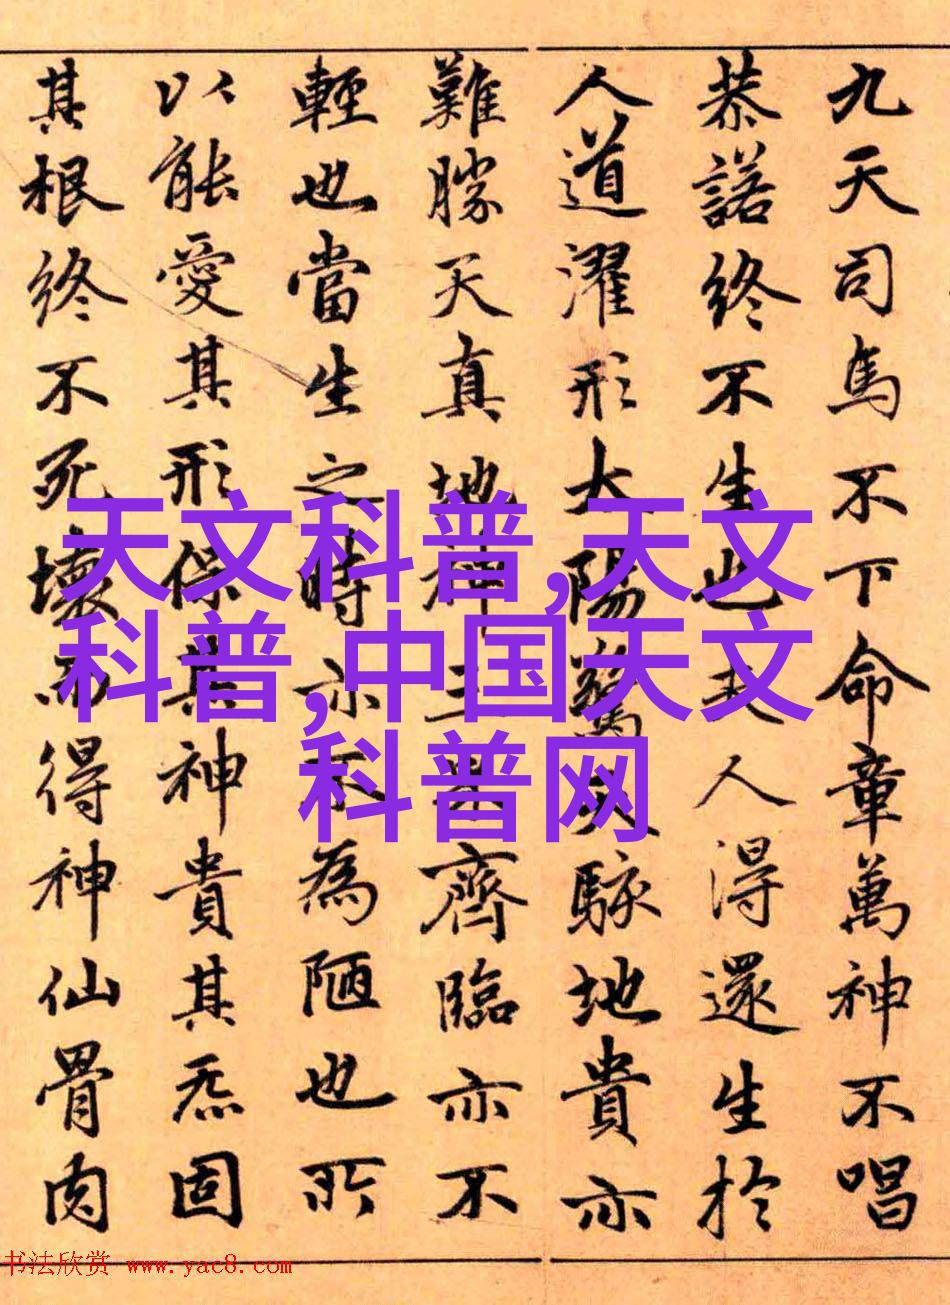 九天司馬不下命章萬神不唱
恭諾終不生也夫人得還生於
人道濯形太陽驚天駭地貴亦
難勝天真地神三界齊臨亦不
輕也當生之時亦不為陋也所
以能愛其形保其神貴其炁固
其根終不死壞而得神仙骨肉
天文科普,天文
科普,中国天文
科普网
书法欣赏 www.yac8.com